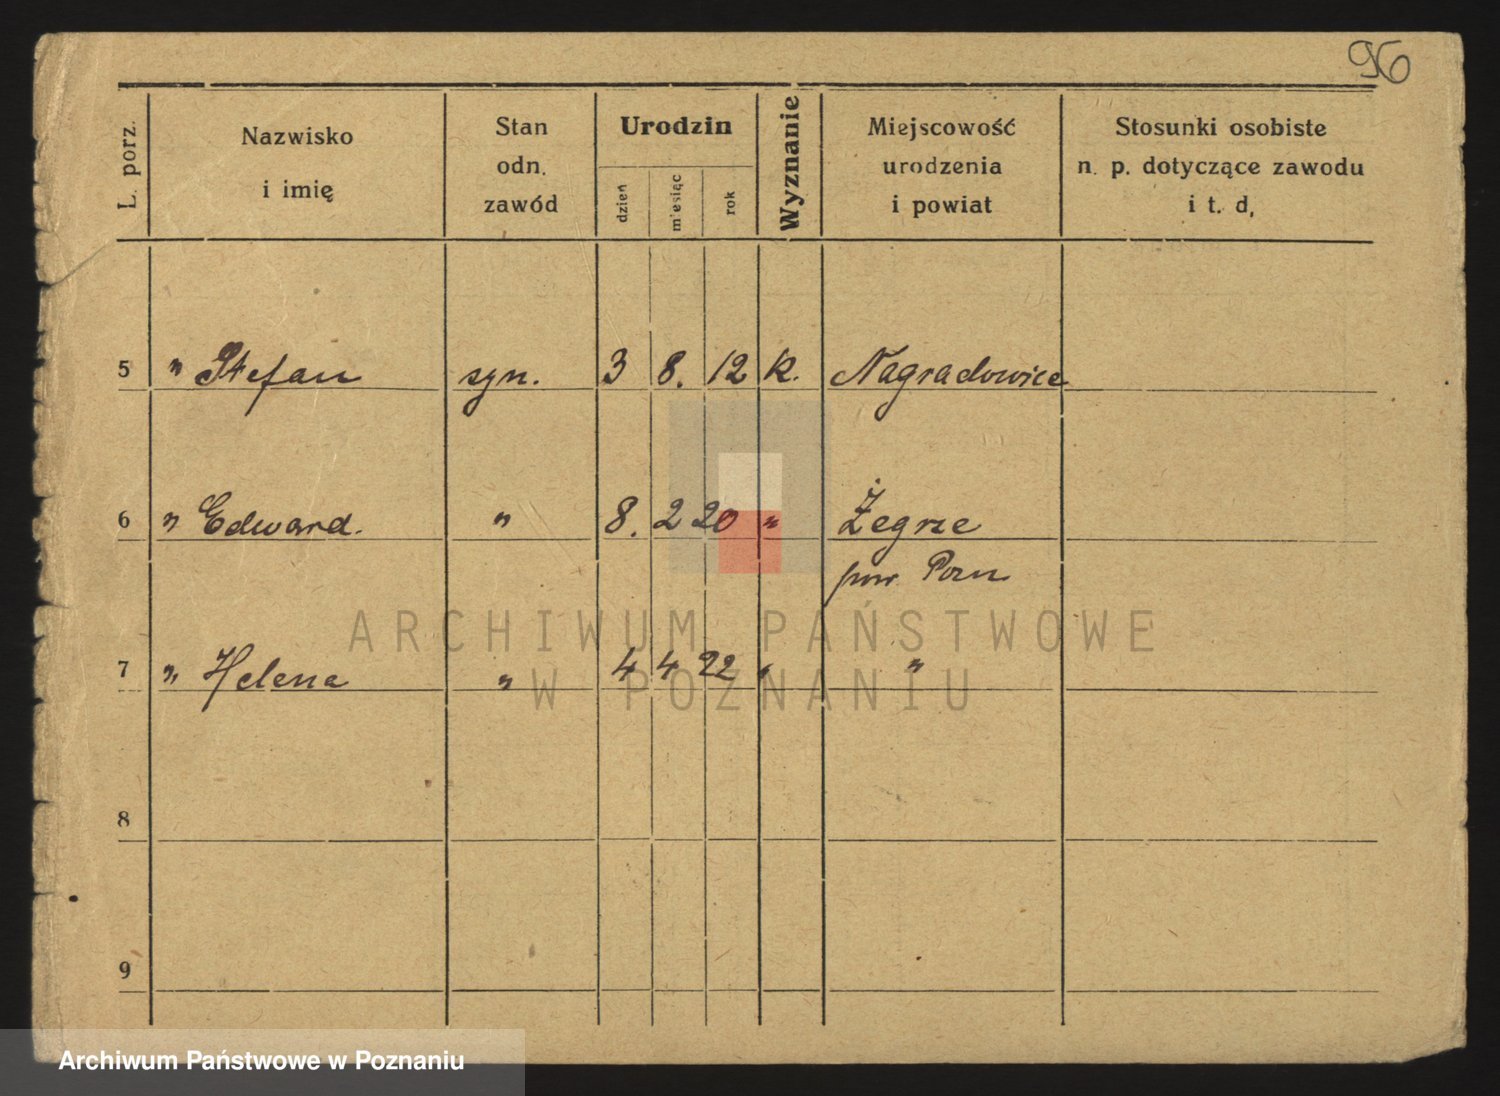 96
L. porz.
Nazwisko
i imię
Stan
odn.
zawód
Urodzin
dzień
miesiąc
rok
Wyznanie
Miejscowość
urodzenia
i powiat
Stosunki osobiste
n. p. dotyczące zawodu
i t. d,
5 " Stefan syn. 3 8. 12 k. Nagradowice
6 " Edward. " 8. 2 20 " Żegrze
pow. Pozn
7 " Helena " 4 4 22 " "
8
9
ARCHIWUM PAŃSTWOWE
W POZNANIU
Archiwum Państwowe w Poznaniu